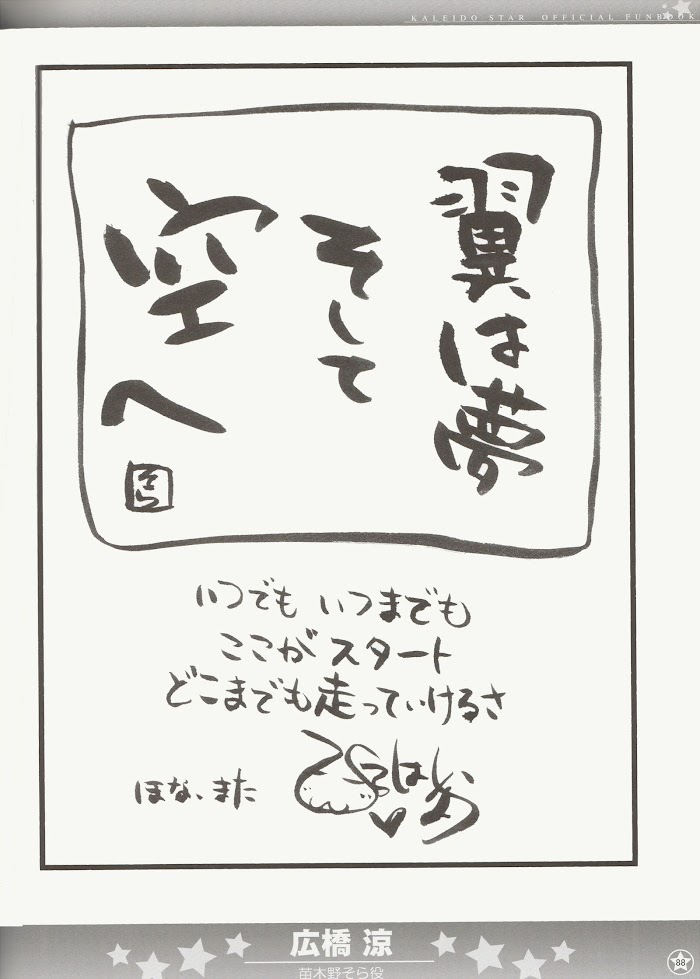 KALEIDO STAR OFFICIAL FUNBOOK
翼は夢
そして
空へ
そら
いつでも いつまでも
ここがスタート
どこまでも走っていけるさ
ほな、また
広橋 涼
苗木野そら役
88